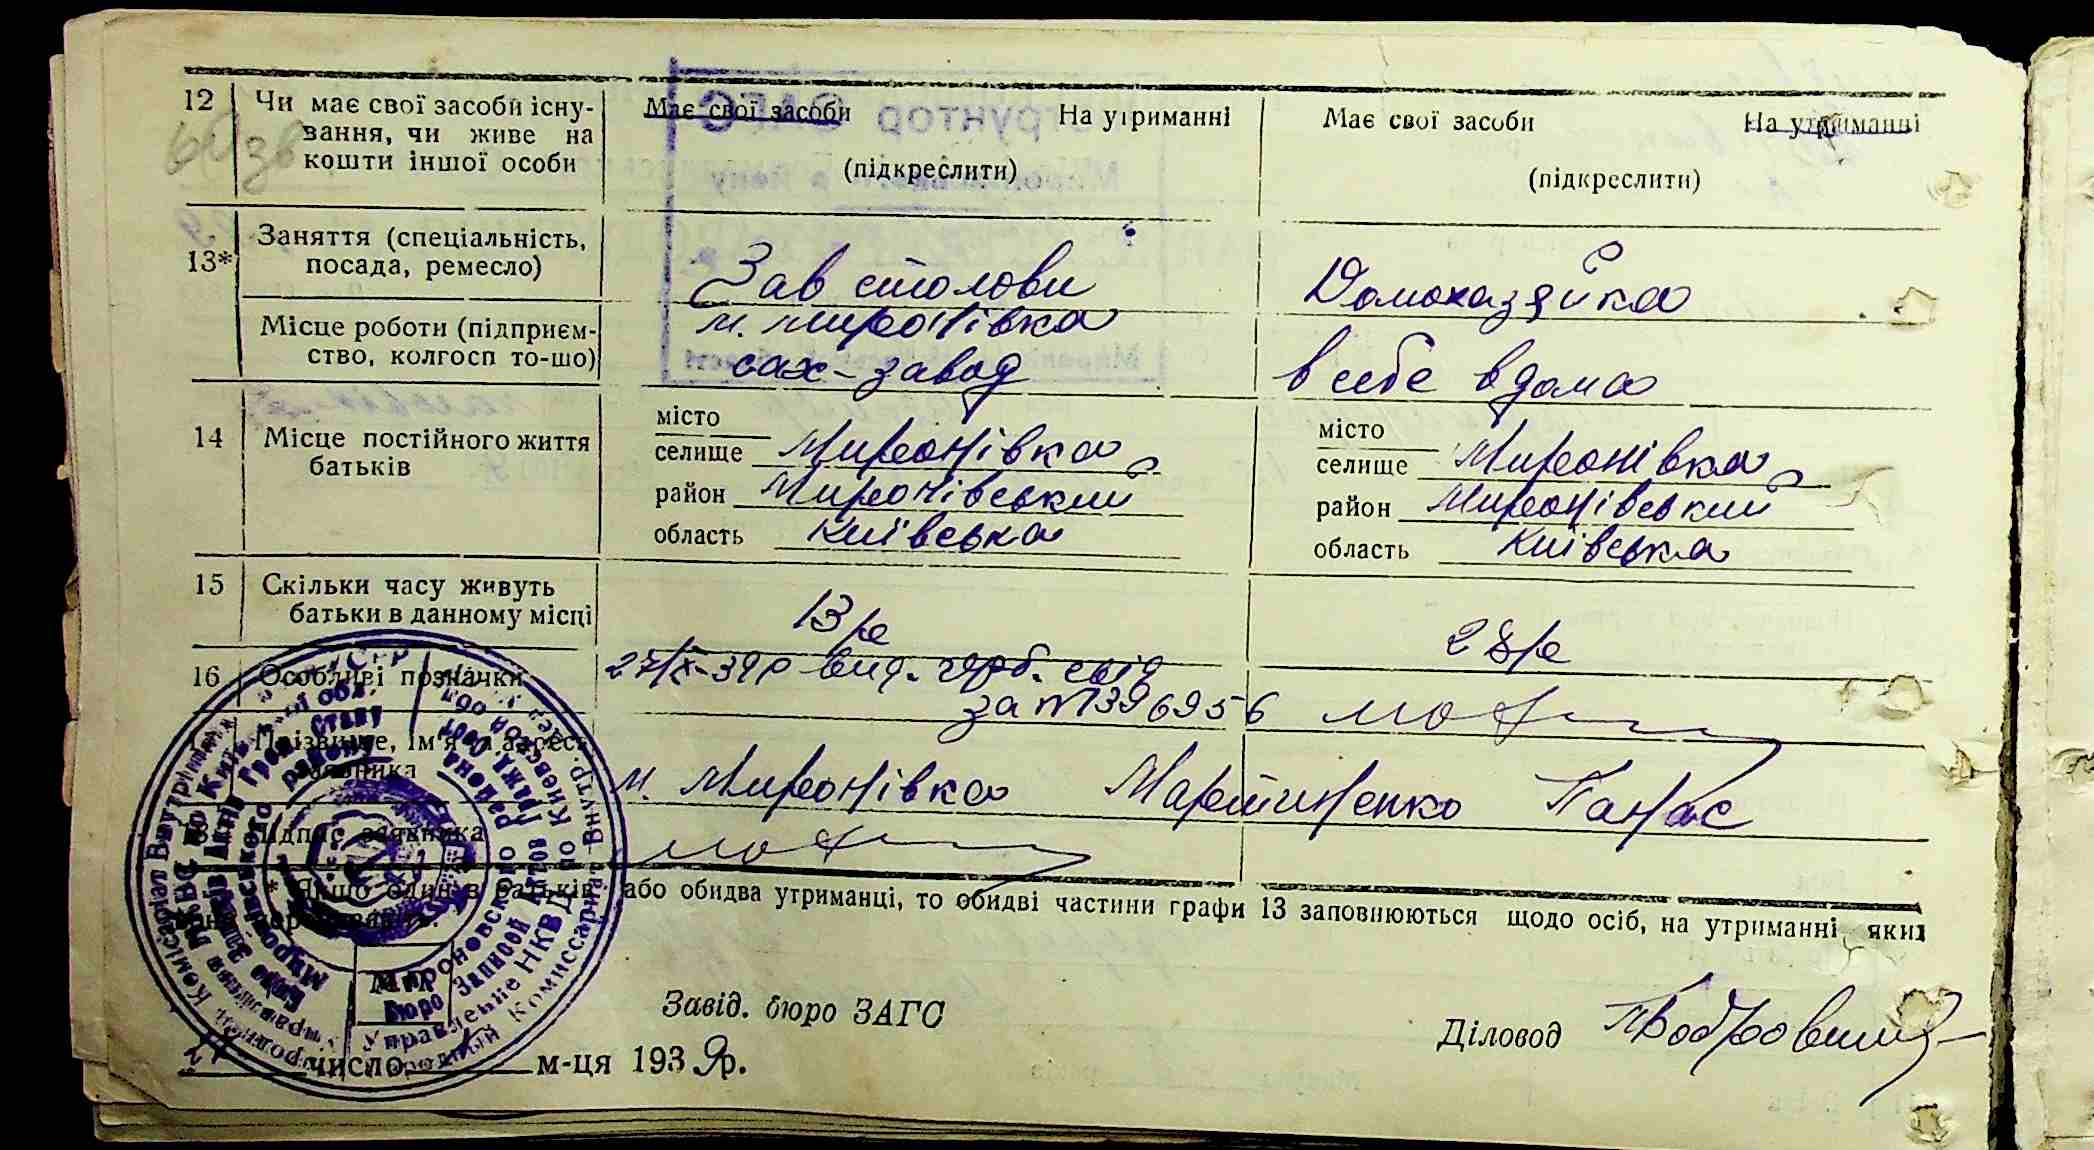 12 Чи має свої засоби існу-
вання, чи живе на
кошти іншої особи
Має свої засоби На утриманні
(підкреслити)
Має свої засоби На утриманні
(підкреслити)
13* Заняття (спеціальність,
посада, ремесло)
Зав столови
Домохазяйка
Місце роботи (підприєм-
ство, колгосп то-що)
м. Миронівка
сах-завод
в себе вдома
14 Місце постійного життя
батьків
місто
селище Миронівка
район Миронівський
область Київська
місто
селище Миронівка
район Миронівський
область Київська
15 Скільки часу живуть
батьки в данному місці
13/р
28/р
16 Особливі позначки
27/X-39р вид. герб. свід
за № 1396956
Прізвище, ім'я та адреса
заявника
м. Миронівка Мартиненко Панас
Підпис заявника
* Якщо один з батьків або обидва утриманці, то обидві частини графи 13 заповнюються щодо осіб, на утриманні яких
Завід. бюро ЗАГС
Діловод
число м-ця 1939р.
Мироновского Района
Бюро Записей Актов Гражд.
Управление НКВД по Киевской обл.